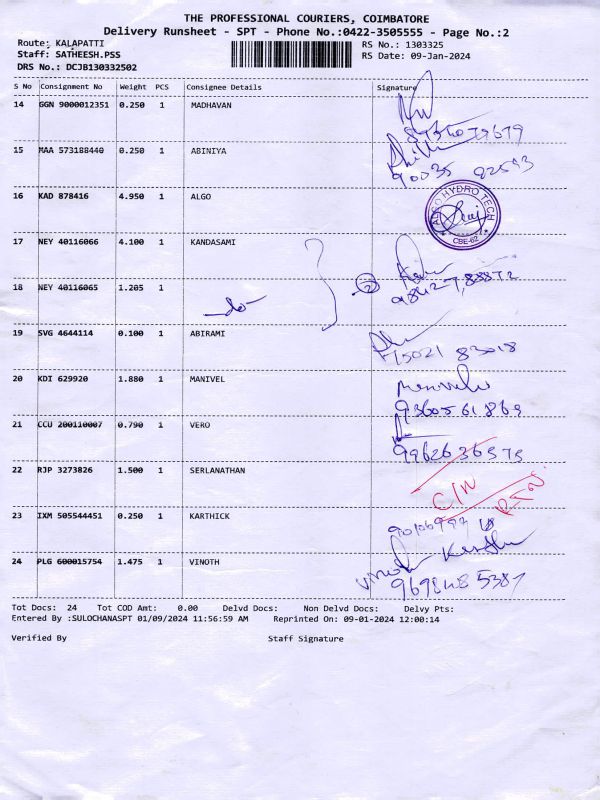 THE PROFESSIONAL COURIERS, COIMBATORE
Delivery Runsheet - SPT - Phone No.:0422-3505555 - Page No.:2
Route: KALAPATTI
RS No.: 1303325
Staff: SATHEESH.PSS
RS Date: 09-Jan-2024
DRS No.: DCJB130332502
S No Consignment No Weight PCS Consignee Details Signature
14 GGN 9000012351 0.250 1 MADHAVAN
15 MAA 573188440 0.250 1 ABINIYA
90035 82593
16 KAD 878416 4.950 1 ALGO
ALGO HYDRO TECH
CBE-62
17 NEY 40116066 4.100 1 KANDASAMI
18 NEY 40116065 1.205 1
-do-
2
19 SVG 4644114 0.100 1 ABIRAMI
20 KDI 629920 1.880 1 MANIVEL
93605 61869
21 CCU 200110007 0.790 1 VERO
9962636575
22 RJP 3273826 1.500 1 SERLANATHAN
C/N
RTN
23 IXM 505544451 0.250 1 KARTHICK
24 PLG 600015754 1.475 1 VINOTH
Vinoth
Tot Docs: 24 Tot COD Amt: 0.00 Delvd Docs: Non Delvd Docs: Delvy Pts:
Entered By :SULOCHANASPT 01/09/2024 11:56:59 AM Reprinted On: 09-01-2024 12:00:14
Verified By Staff Signature